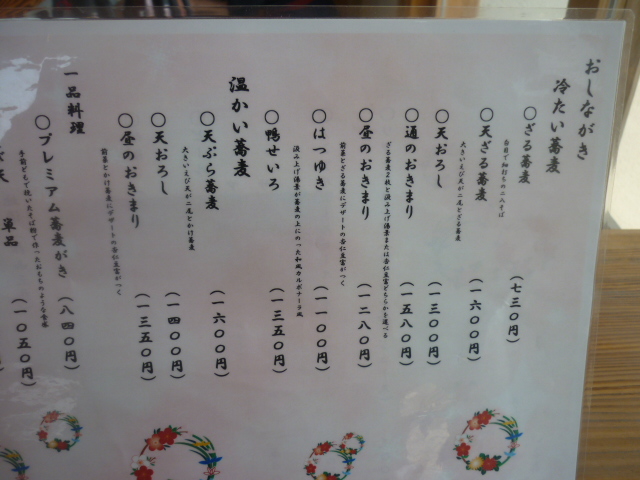 おしながき
冷たい蕎麦
〇ざる蕎麦 (七三〇円)
自家で細打ちの二八そば
〇天ざる蕎麦 (一六〇〇円)
大きいえび天が二尾とざる蕎麦
〇天おろし (一三〇〇円)
〇通のおきまり (一五八〇円)
ざる蕎麦2枚と汲み上げ湯葉または杏仁豆富どちらかを選べる
〇昼のおきまり (一二八〇円)
前菜とざる蕎麦にデザートの杏仁豆富がつく
〇はつゆき (一一〇〇円)
汲み上げ湯葉が蕎麦の上にのった和風カルボナーラ風
〇鴨せいろ (一三五〇円)
温かい蕎麦
〇天ぷら蕎麦 (一六〇〇円)
大きいえび天が二尾とかけ蕎麦
〇天おろし (一四〇〇円)
〇昼のおきまり (一三五〇円)
前菜とかけ蕎麦にデザートの杏仁豆富がつく
一品料理
〇プレミアム蕎麦がき (八四〇円)
単品 (一〇五〇円)